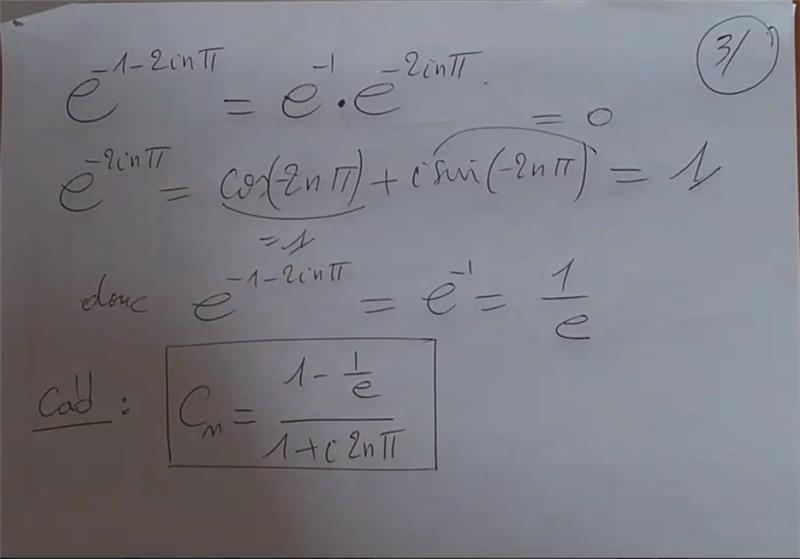 3/
e^{-1-2inπ} = e^{-1} · e^{-2inπ}.
= 0
e^{-2inπ} = cos(-2nπ) + i sin(-2nπ) = 1
= 1
donc e^{-1-2inπ} = e^{-1} = \frac{1}{e}
Càd : C_n = \frac{1 - \frac{1}{e}}{1 + i2nπ}